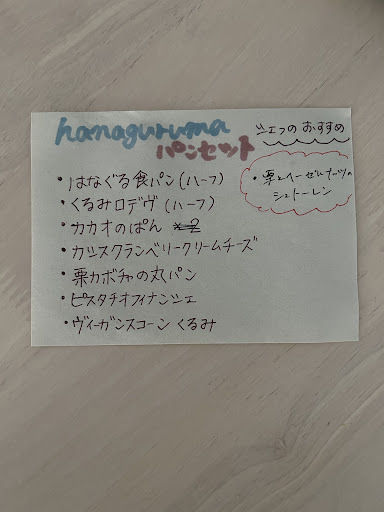 hanaguruma
パンセット
シェフのおすすめ
・栗とヘーゼルナッツの
シュトーレン
・はなぐる食パン(ハーフ)
・くるみロデヴ(ハーフ)
・カカオのぱん
・カシスクランベリークリームチーズ
・栗カボチャの丸パン
・ピスタチオフィナンシェ
・ヴィーガンスコーン くるみ